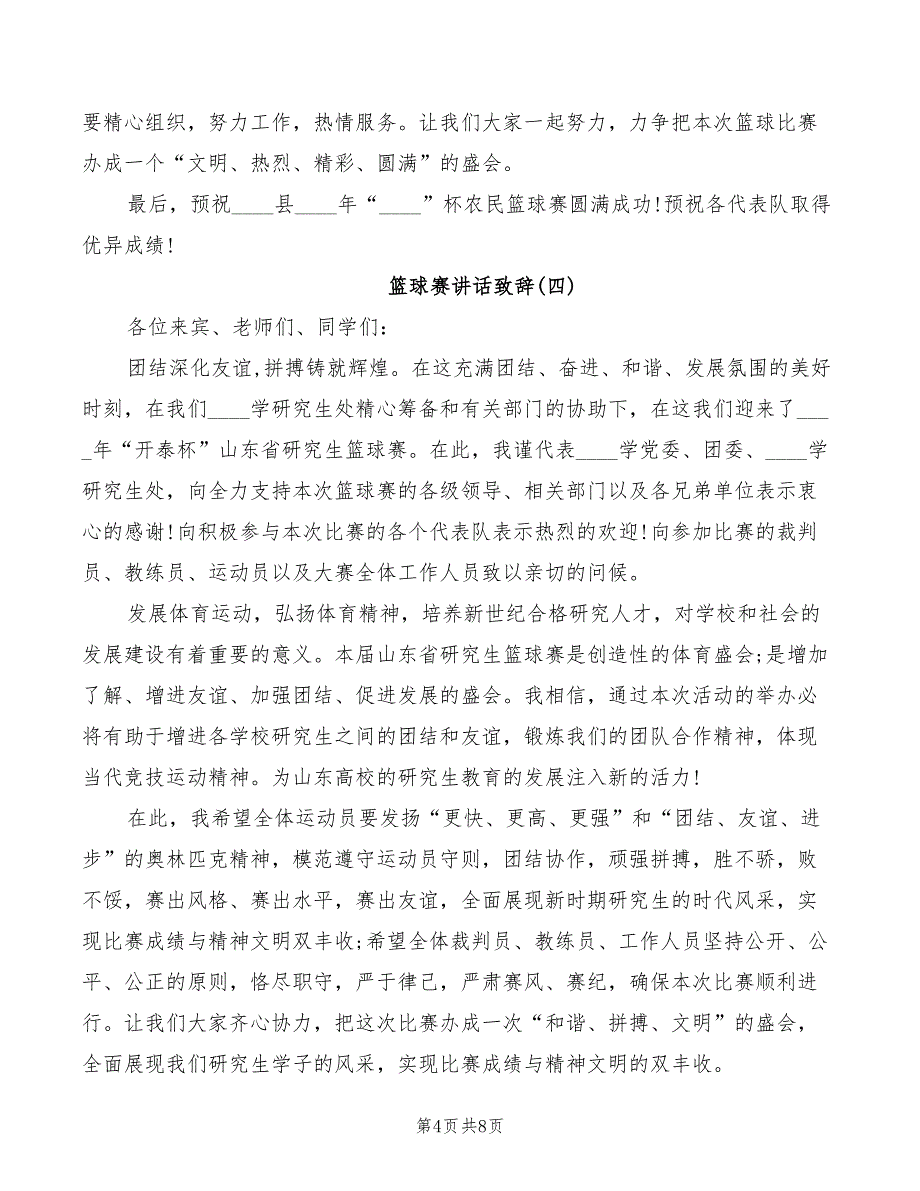 要精心组织，努力工作，热情服务。让我们大家一起努力，力争把本次篮球比赛
办成一个“文明、热烈、精彩、圆满”的盛会。
最后，预祝____县____年“____”杯农民篮球赛圆满成功!预祝各代表队取得
优异成绩!
篮球赛讲话致辞(四)
各位来宾、老师们、同学们:
团结深化友谊,拼搏铸就辉煌。在这充满团结、奋进、和谐、发展氛围的美好
时刻，在我们____学研究生处精心筹备和有关部门的协助下，在这我们迎来了___
_年“开泰杯”山东省研究生篮球赛。在此，我谨代表____学党委、团委、____学
研究生处，向全力支持本次篮球赛的各级领导、相关部门以及各兄弟单位表示衷
心的感谢!向积极参与本次比赛的各个代表队表示热烈的欢迎!向参加比赛的裁判
员、教练员、运动员以及大赛全体工作人员致以亲切的问候。
发展体育运动，弘扬体育精神，培养新世纪合格研究人才，对学校和社会的
发展建设有着重要的意义。本届山东省研究生篮球赛是创造性的体育盛会;是增加
了解、增进友谊、加强团结、促进发展的盛会。我相信，通过本次活动的举办必
将有助于增进各学校研究生之间的团结和友谊，锻炼我们的团队合作精神，体现
当代竞技运动精神。为山东高校的研究生教育的发展注入新的活力!
在此，我希望全体运动员要发扬“更快、更高、更强”和“团结、友谊、进
步”的奥林匹克精神，模范遵守运动员守则，团结协作，顽强拼搏，胜不骄，败
不馁，赛出风格、赛出水平，赛出友谊，全面展现新时期研究生的时代风采，实
现比赛成绩与精神文明双丰收;希望全体裁判员、教练员、工作人员坚持公开、公
平、公正的原则，恪尽职守，严于律己，严肃赛风、赛纪，确保本次比赛顺利进
行。让我们大家齐心协力，把这次比赛办成一次“和谐、拼搏、文明”的盛会，
全面展现我们研究生学子的风采，实现比赛成绩与精神文明的双丰收。
第4页 共8页